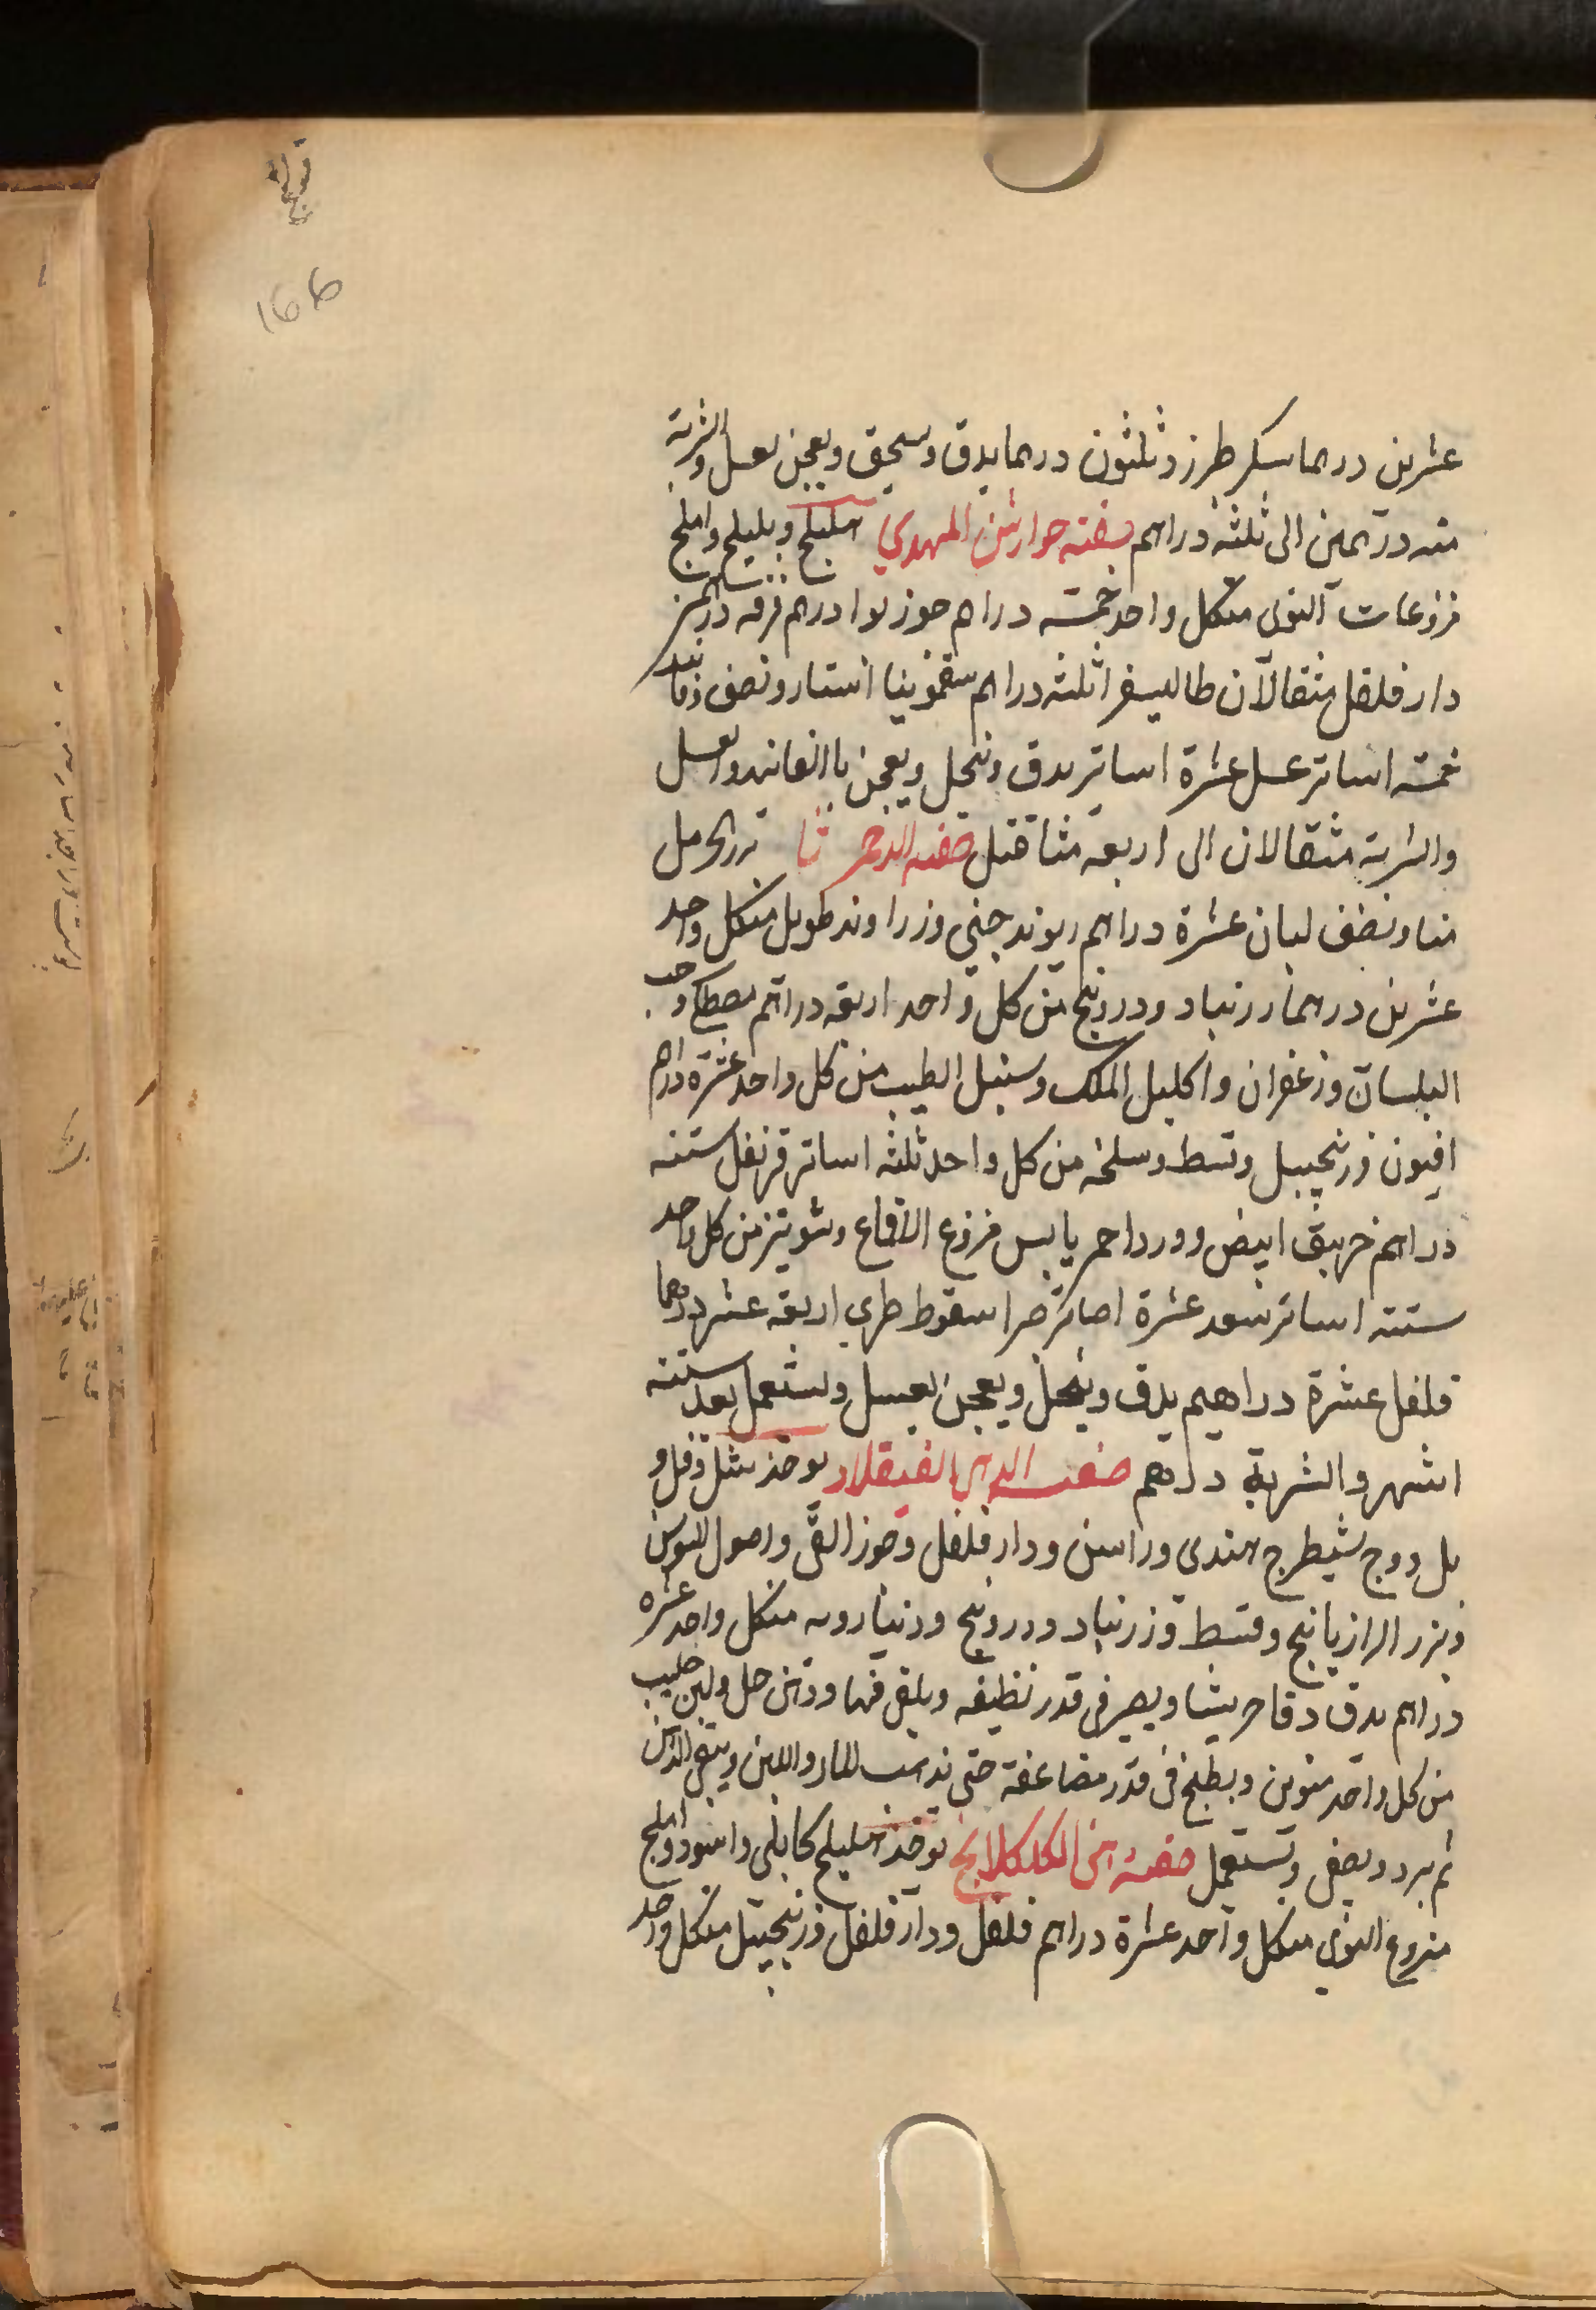 166
عشرين درهما سكر طبرزد ثلثون درهما يدق ويسحق ويعجن بعسل والشربة
منه درهمين الى ثلثة دراهم صفة جوارشن المهدي هليلج وبليلج واملج
منزوعات النوى من كل واحد خمسة دراهم جوز بوا درهم قرفه درهمين
دار فلفل مثقالان طاليسفر ثلثه دراهم سقمونيا استار ونصف فانيد
خمسة اساتر عسل عشرة اساتر يدق وينخل ويعجن بالفانيد والعسل
والشربة مثقالان الى اربعه مثاقيل صفه الدحمرثا بزر الحرمل
منا ونصف لبان عشرة دراهم ريوند صيني وزراوند طويل من كل واحد
عشرين درهما زرنباد ودرونج من كل واحد اربعه دراهم مصطكى وحب
البلسان وزعفران واكليل الملك وسنبل الطيب من كل واحد عشرة دراهم
افيون وزنجبيل وقسط وسليخه من كل واحد ثلثه اساتر قرنفل ستة
دراهم خربق ابيض وورد احمر يابس منزوع الاقماع وشونيز من كل واحد
ستة اساتر سعد عشرة اساتر صبر اسقوطري اربعه عشر درهما
فلفل عشرة دراهيم يدق وينخل ويعجن بعسل ويستعمل بعد ستة
اشهر والشربة درهم صفة الدهن يوخذ شل وفل و
بل ووج شيطرج هندى وراسن ودار فلفل وجوز القى واصول السوسن
وبزر الرازيانج وقسط وزرنباد ودرونج من كل واحد عشره
دراهم يدق دقا جريشا ويصير فى قدر نظيفه ويلقى فيها ودهن حل ولبن حليب
من كل واحد منوين ويطبخ فى قدر مضاعفة حتى يذهب الماء واللبن ويبقى الدهن
ثم يبرد ويصفى ويستعمل صفة دهن الكلكلانج يوخذ هليلج كابلى واسود واملج
منزوع النوى من كل واحد عشرة دراهم فلفل ودار فلفل وزنجبيل من كل واحد